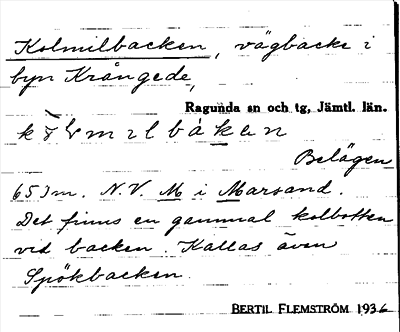 Kolmilbacken, vägbacke i
byn Krångede,
Ragunda sn och tg, Jämtl. län.
Belägen
653 m. N.V. M i Marsand.
Det finns en gammal kolbotten
vid backen. Kallas även
Spökbacken.
BERTIL FLEMSTRÖM 1936